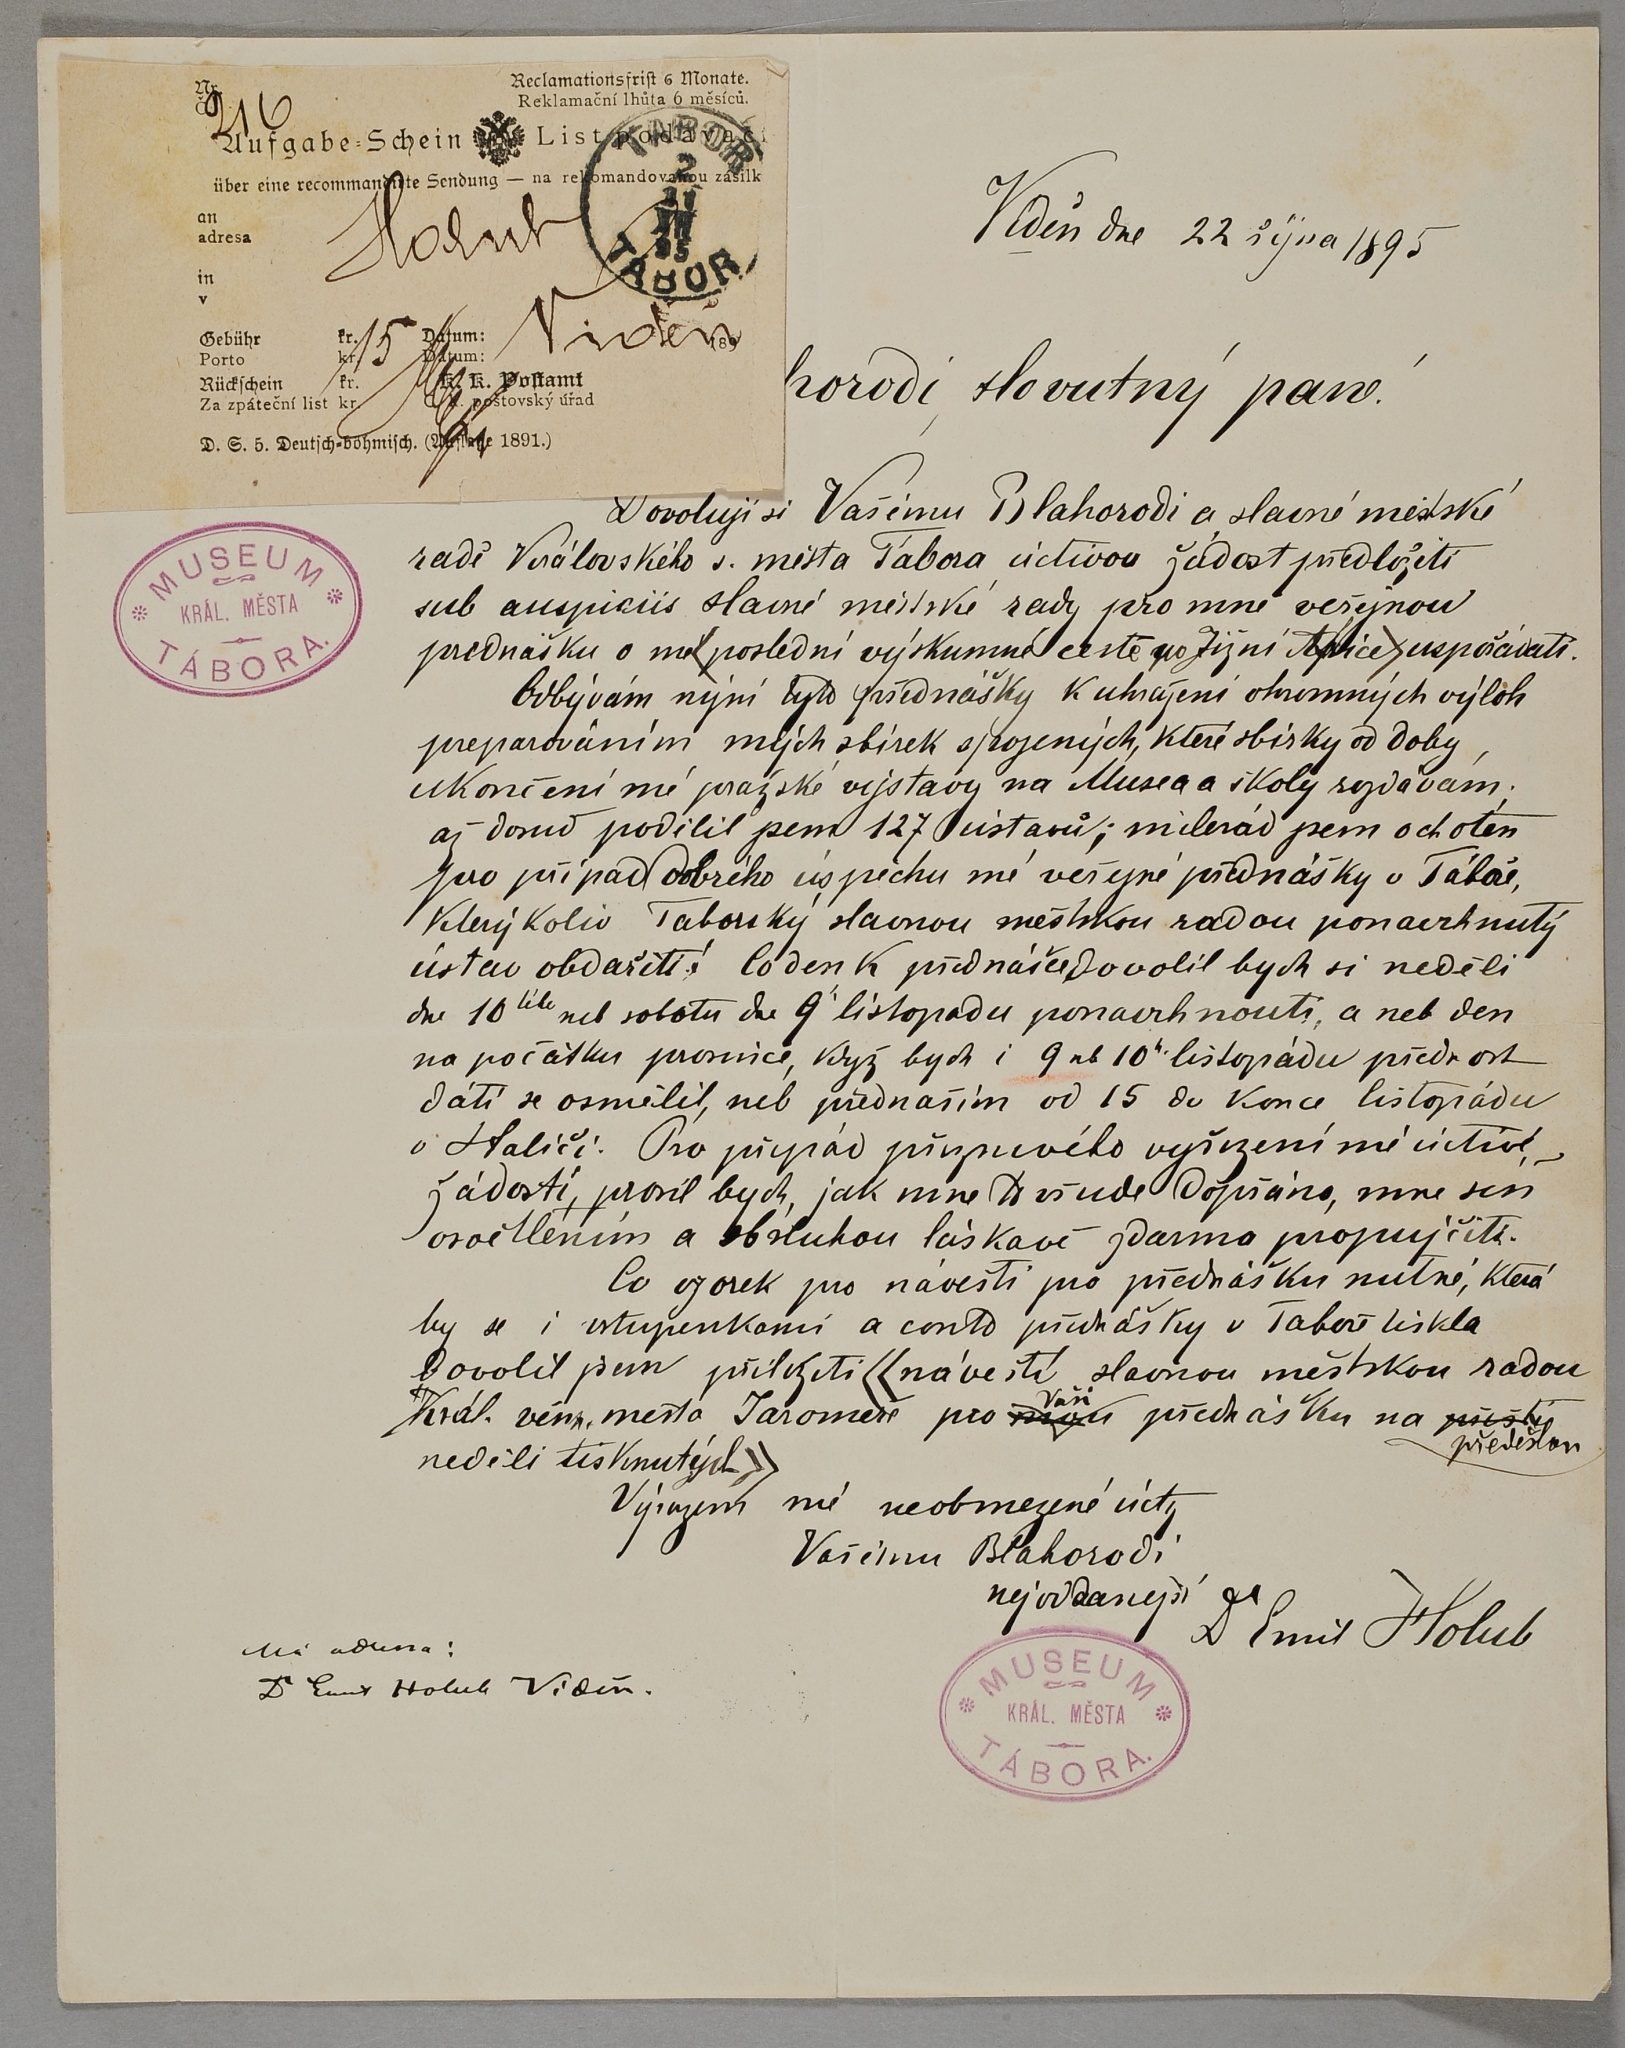 Nr.
Č. 216
Reclamationsfrist 6 Monate.
Reklamační lhůta 6 měsíců.
Aufgabe-Schein List podávací
über eine recommandirte Sendung — na rekomandovanou zásilk
an
adresa Holub
in
v Vídeň
TÁBOR
2
95
TÁBOR
Gebühr kr. 15 Datum:
Porto kr. Datum: 189
Rückschein kr. K. K. Postamt
Za zpáteční list kr. C. k. poštovský úřad
D. S. 5. Deutsch-böhmisch. (Auflage 1891.)
Vídeň dne 22 října 1895
horodí, slovutný pane!
Dovoluji si Vašemu Blahorodi a slavné městské
radě Královského s. města Tábora uctivou žádost předložiti
sub auspiciis slavné městské rady pro mne veřejnou
prednášku o mé poslední výskumné cestě po Jižní Africe uspořádati.
Odbývám nyní tyto přednášky k uhražení ohromných výloh
preparováním mých sbírek spojených, které sbírky od doby
ukončení mé pražské výstavy na Musea a školy rozdávám.
až dosud podílil jsem 127 ústavů; milerád jsem ochoten
pro případ dobrého úspěchu mé veřejné přednášky v Táboře,
kterýkoliv Taborský slavnou městskou radou ponavrhnutý
ústav obdařiti! Co den k přednášce dovolil bych si neděli
dne 10 neb sobotu dne 9 listopadu ponavrhnouti, a neb den
na počátku prosince, když bych i 9 nb 10 listopádu přednost
dáti se osmělil, neb přednaším od 15 do konce listopádu
v Haliči. Pro případ příznivého vyřízení mé uctivé
žádosti, prosil bych, jak mne to všude dopřáno, mne sin
osvětlením a obsluhou láskavě zdarma propujčiti.
Co vzorek pro návěští pro přednášku nutné, která
by se i vstupenkami a conto přednášky v Taboře tiskla
dovolil jsem přiložiti návěstí slavnou městskou radou
Král. věnn. města Jaroměře pro Vaši přednášku na
předešlou
neděli tisknutých
Výrazem mé neobmezené úcty
Vašemu Blahorodí
nejoddanejší
Dr Emil Holub
Má adresa:
Dr Emil Holub Vídeň.
MUSEUM
KRÁL. MĚSTA
TÁBORA.
MUSEUM
KRÁL. MĚSTA
TÁBORA.